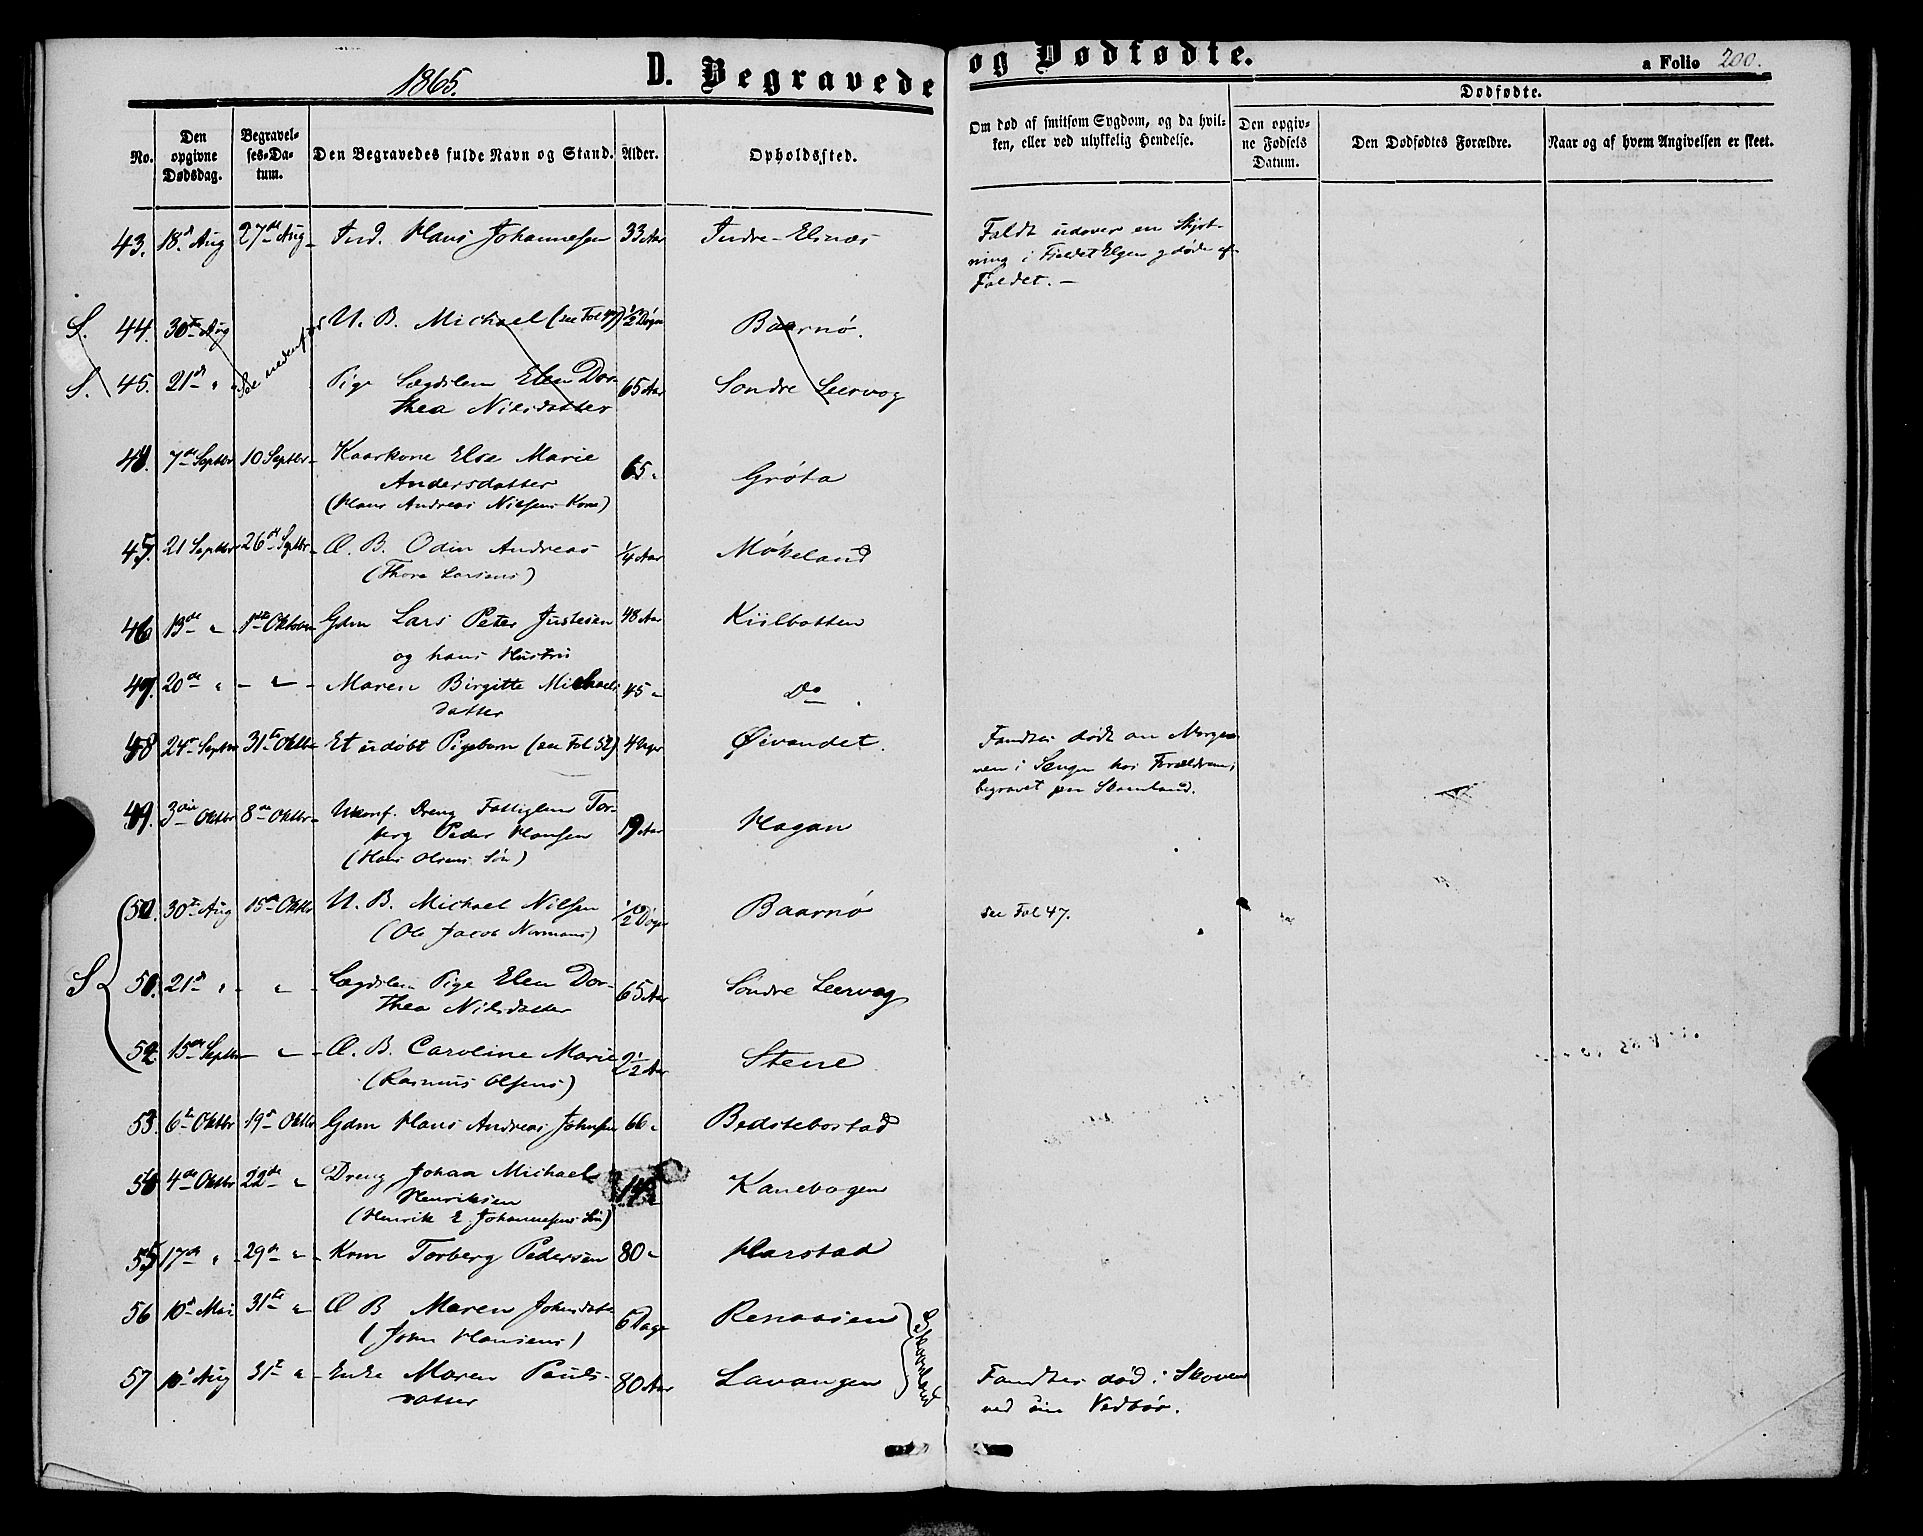 1865.
D. Begravede og Dødfødte.
a Folio 200.
No.
Den opgivne Dødsdag.
Begravelses-Datum.
Den Begravedes fulde Navn og Stand.
Alder.
Opholdssted.
Om død af smitsom Sygdom, og da hvilken, eller ved ulykkelig Hendelse.
Dødfødte.
Den opgivne Fødsels Datum.
Den Dødfødtes Forældre.
Naar og af hvem Angivelsen er skeet.
43. 18d Aug 27de Aug Ind. Hans Johannesen 33 Aar Indre-Elsnæs
Faldt udover en
ning i Fjeldet Elgen og døde af
Faldet. —
S. 44. 30te Aug U. B. Michael (see Fol 47) ½ Døgn Baarnø.
See nedenfor
S. 45. 21de " Pige Lægdslem Elen Dor- 65 Aar Søndre Leervog
thea Nilsdatter
44. 7de Septbr 10 Septbr Kaarkone Else Marie 65 " Grøta
Andersdatter
(Hans Andreas Nielsens Kone)
45. 21 Septbr 26de Septbr Æ. B. Odin Andreas ¼ Aar Møkeland
(Thore Larsens)
46 13de " 1ste Oktober Gdm Lars Peter Justesen 48 Aar Kiilbotten
og hans Hustru
47. 20de " - " - Maren Birgitte Michaels 45 " Do
datter
48 24de Septbr 31te Oktbr Et udøbt Pigebarn (see Fol 52) 4 Uger Øivandet.
Fandtes dødt om Morge-
nen i Sengen hos Forældrene;
begravet paa Skaanland.
49. 3die Oktbr 8de Oktbr Ukonf. Dreng Fattiglem Tor- 19 Aar Hagan
berg Peder Hansen
(Hans Olsens Søn)
50. 30te Aug 15de Oktbr U. B. Michael Nilsen ½ Døgn Baarnø see Fol 47.
(Ole Jacob Normans)
S 51. 21d " - " - Lægdslem Pige Elen Dor- 65 Aar Søndre Leervog
thea Nilsdatter
52. 15de Septbr - " - Æ. B. Caroline Marie 2½ Aar Stene
(Rasmus Olsens)
53. 6te Oktbr 19de Oktbr Gdm Hans Andreas Johnsen 66 " Bedstebostad
54 4de Oktbr 22de " Dreng Johan Michael 14 Kanebogen
Henriksen
(Henrik E Johannesens Søn)
55 17de " 29de " Krm Torberg Pedersen 80 " Harstad
56 10d Mai 31te " Æ B Maren Johnsdatr 6 Dage Renaaien
(John Hansens)
Skaanland
57 10d Aug 31te " Enke Maren Pauls- 80 Aar Lavangen
datter
Fandtes død i Skoven
ved sin Vedbør.